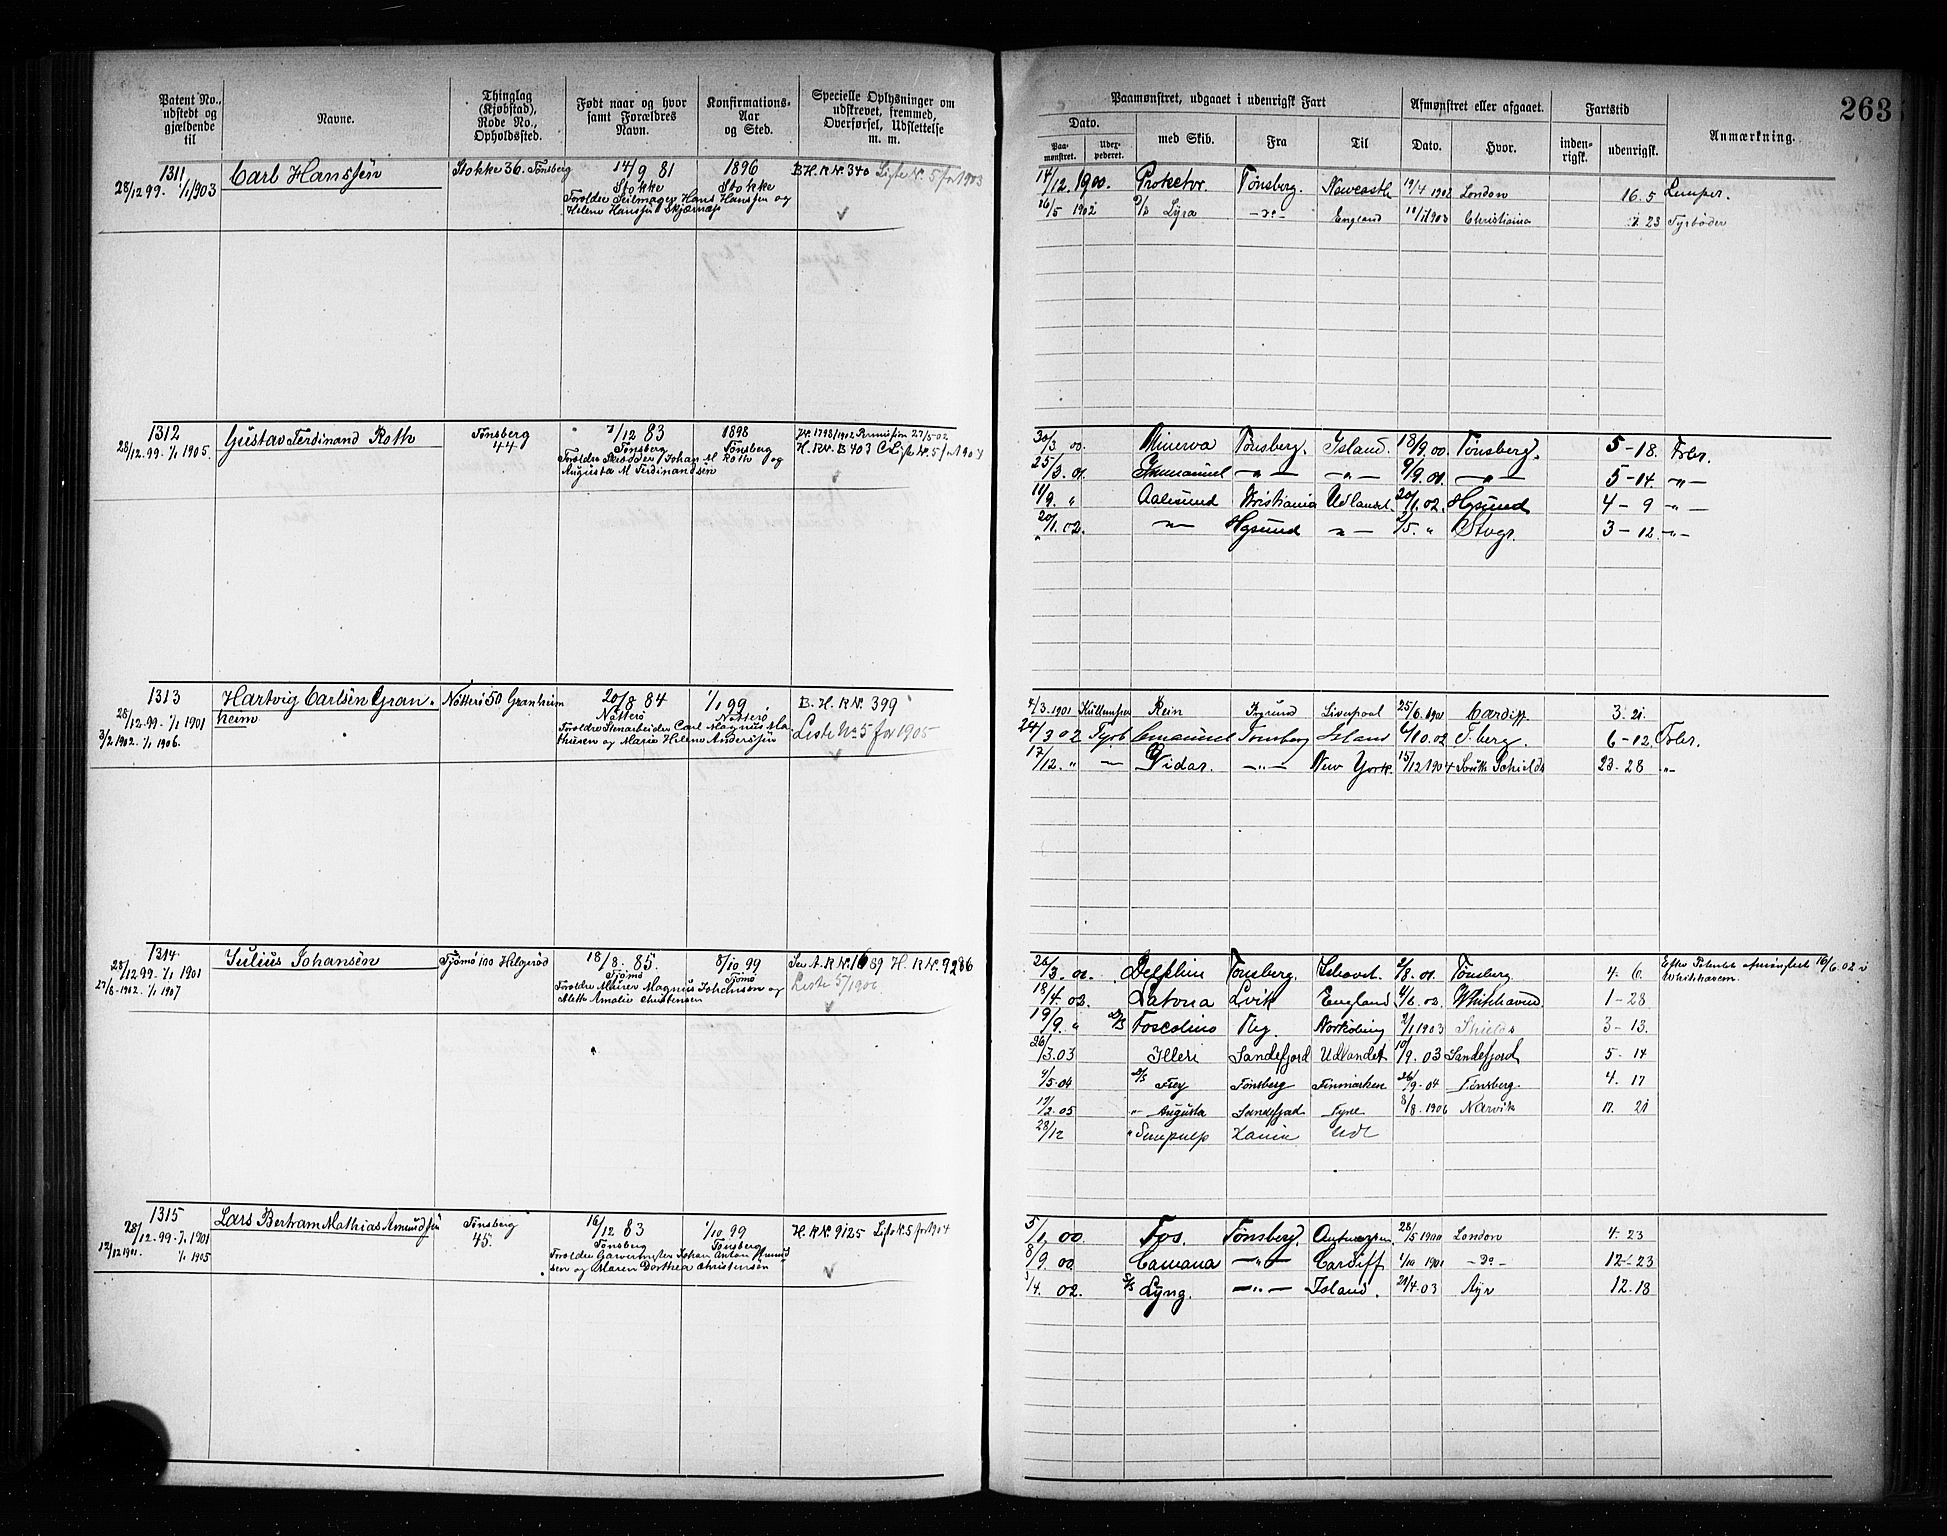 263
Patent No., udstedt og gjældende til
Navne.
Thinglag (Kjøbstad), Rode No., Opholdssted.
Født naar og hvor samt Forældres Navn.
Konfirmations-Aar og Sted.
Specielle Oplysninger om udskrevet, fremmed, Overførsel, Udslettelse m. m.
Paamønstret, udgaaet i udenrigsk Fart
Dato.
Paa-mønstret.
Uder-pederet.
med Skib.
Fra
Til
Afmønstret eller afgaaet.
Dato.
Hvor.
Fartstid
inden-rigsk.
udenrigsk.
Anmærkning.
1311 Carl Hanssen Stokke 36. Tønsberg 14/9 81 1896 B H. R № 340 Liste № 5 for 1903
28/12 99. 1/1 1903 Stokke Stokke
Forældre Seilmager Hans Hanssen og
Helene Hanssen Skjærnæs
14/12 1900. Tønsberg. Newcastle 19/4 1902 London 16. 5 Lemper.
16/5 1902 Lyra -do- England 1903 Christiania 23 Fyrbøder
1312 Gustav Ferdinand Roth Tønsberg 44 /12 83 1898
28/12 99. 1/1 1905. Tønsberg Tønsberg H. R№. B 403 Liste № 5 for 1904
Johan M Roth og
Augusta M Ferdinandsen
30/3 00. Minerva Tønsberg. Island. 18/9. 00. Tønsberg. 5-18.
25/3. 01. Immanuel -"- -"- 9/9. 01. -"- 5-14. -"-
11/9. " Aalesund Kristiania Udlandet. 20/1. 02. Hgsund 4-9 "-
20/1. 02. -"- Hgsund -"- /5. " Stvgr. 3-12 -"-
1313 Hartvig Carlsen Gran- Nøtterø 50 Granheim 20/8 84 1/1 99 B. H. R №. 399
heim Nøtterø Nøtterø
28/12. 99. 1/1 1901 Forældre Stenarbeider Carl Magnus Ma-
3/2 1902. 1/1 1906. thisen og Marie Helene Andersen Liste № 5 for 1905
4/3. 1901 Rein Liverpool 25/6. 1901 Cardiff 3. 21.
24/3 02 Fyrb Emanuel Tønsberg Island /10. 02 T.berg. 6-12.
17/12. " — Vidar. -"- New York. 15/12 1904 South Schields 23-28 "-
1314 Julius Johansen Tjømø 100 Helgerød 18/8. 85. 8/10 99 H. R №. 9286
28/12 99. 1/1 1901 Tjømø Tjømø Liste 5/1906
27/6. 1902. 1/1 1907 Forældre Murer Magnus Johansen og
Aleth Amalie Christensen
26/3. 01. Delphin Tønsberg. Ishavet. /8. 01. Tønsberg 4. 6.
18/4. 02. Latona Lvik England. 4/6. 02. Whitehaven 1-28
19/9. " D/S Foscolino Norköbing 2/1 1903 Shields 3-13.
26/3.03 Illeri Sandefjord Udlandet 10/9. 03 Sandefjord 5. 14
4/5.04 D/S Frey Tønsberg Finmarken 26/9. 04 Tønsberg. 4. 17
17/2.05 "- Augusta Sandefjord Tyne 8/8. 1906 Narvik 17. 21
28/12
1315 Lars Bertram Mathias Amundsen Tønsberg 45. 16/12 83 1/10 99 H. R №. 9125 Liste № 5 for 1904
28/12. 99. 1/1 1901 Tønsberg Tønsberg
12/12 1901. 1/1 1905 Forældre Garvermester Johan Anton Amund-
sen og Maren Dorthea Christensen
5/1. 00. Fos. Tønsberg. Antwerpen 28/5 1900 London 4. 23
8/9. 00 Camana -"- Cardiff 1/10 1901 -Do- 12-23
/4. 02. S/S Lyng. -"- Island. 21/4.03 Ayr 12.18